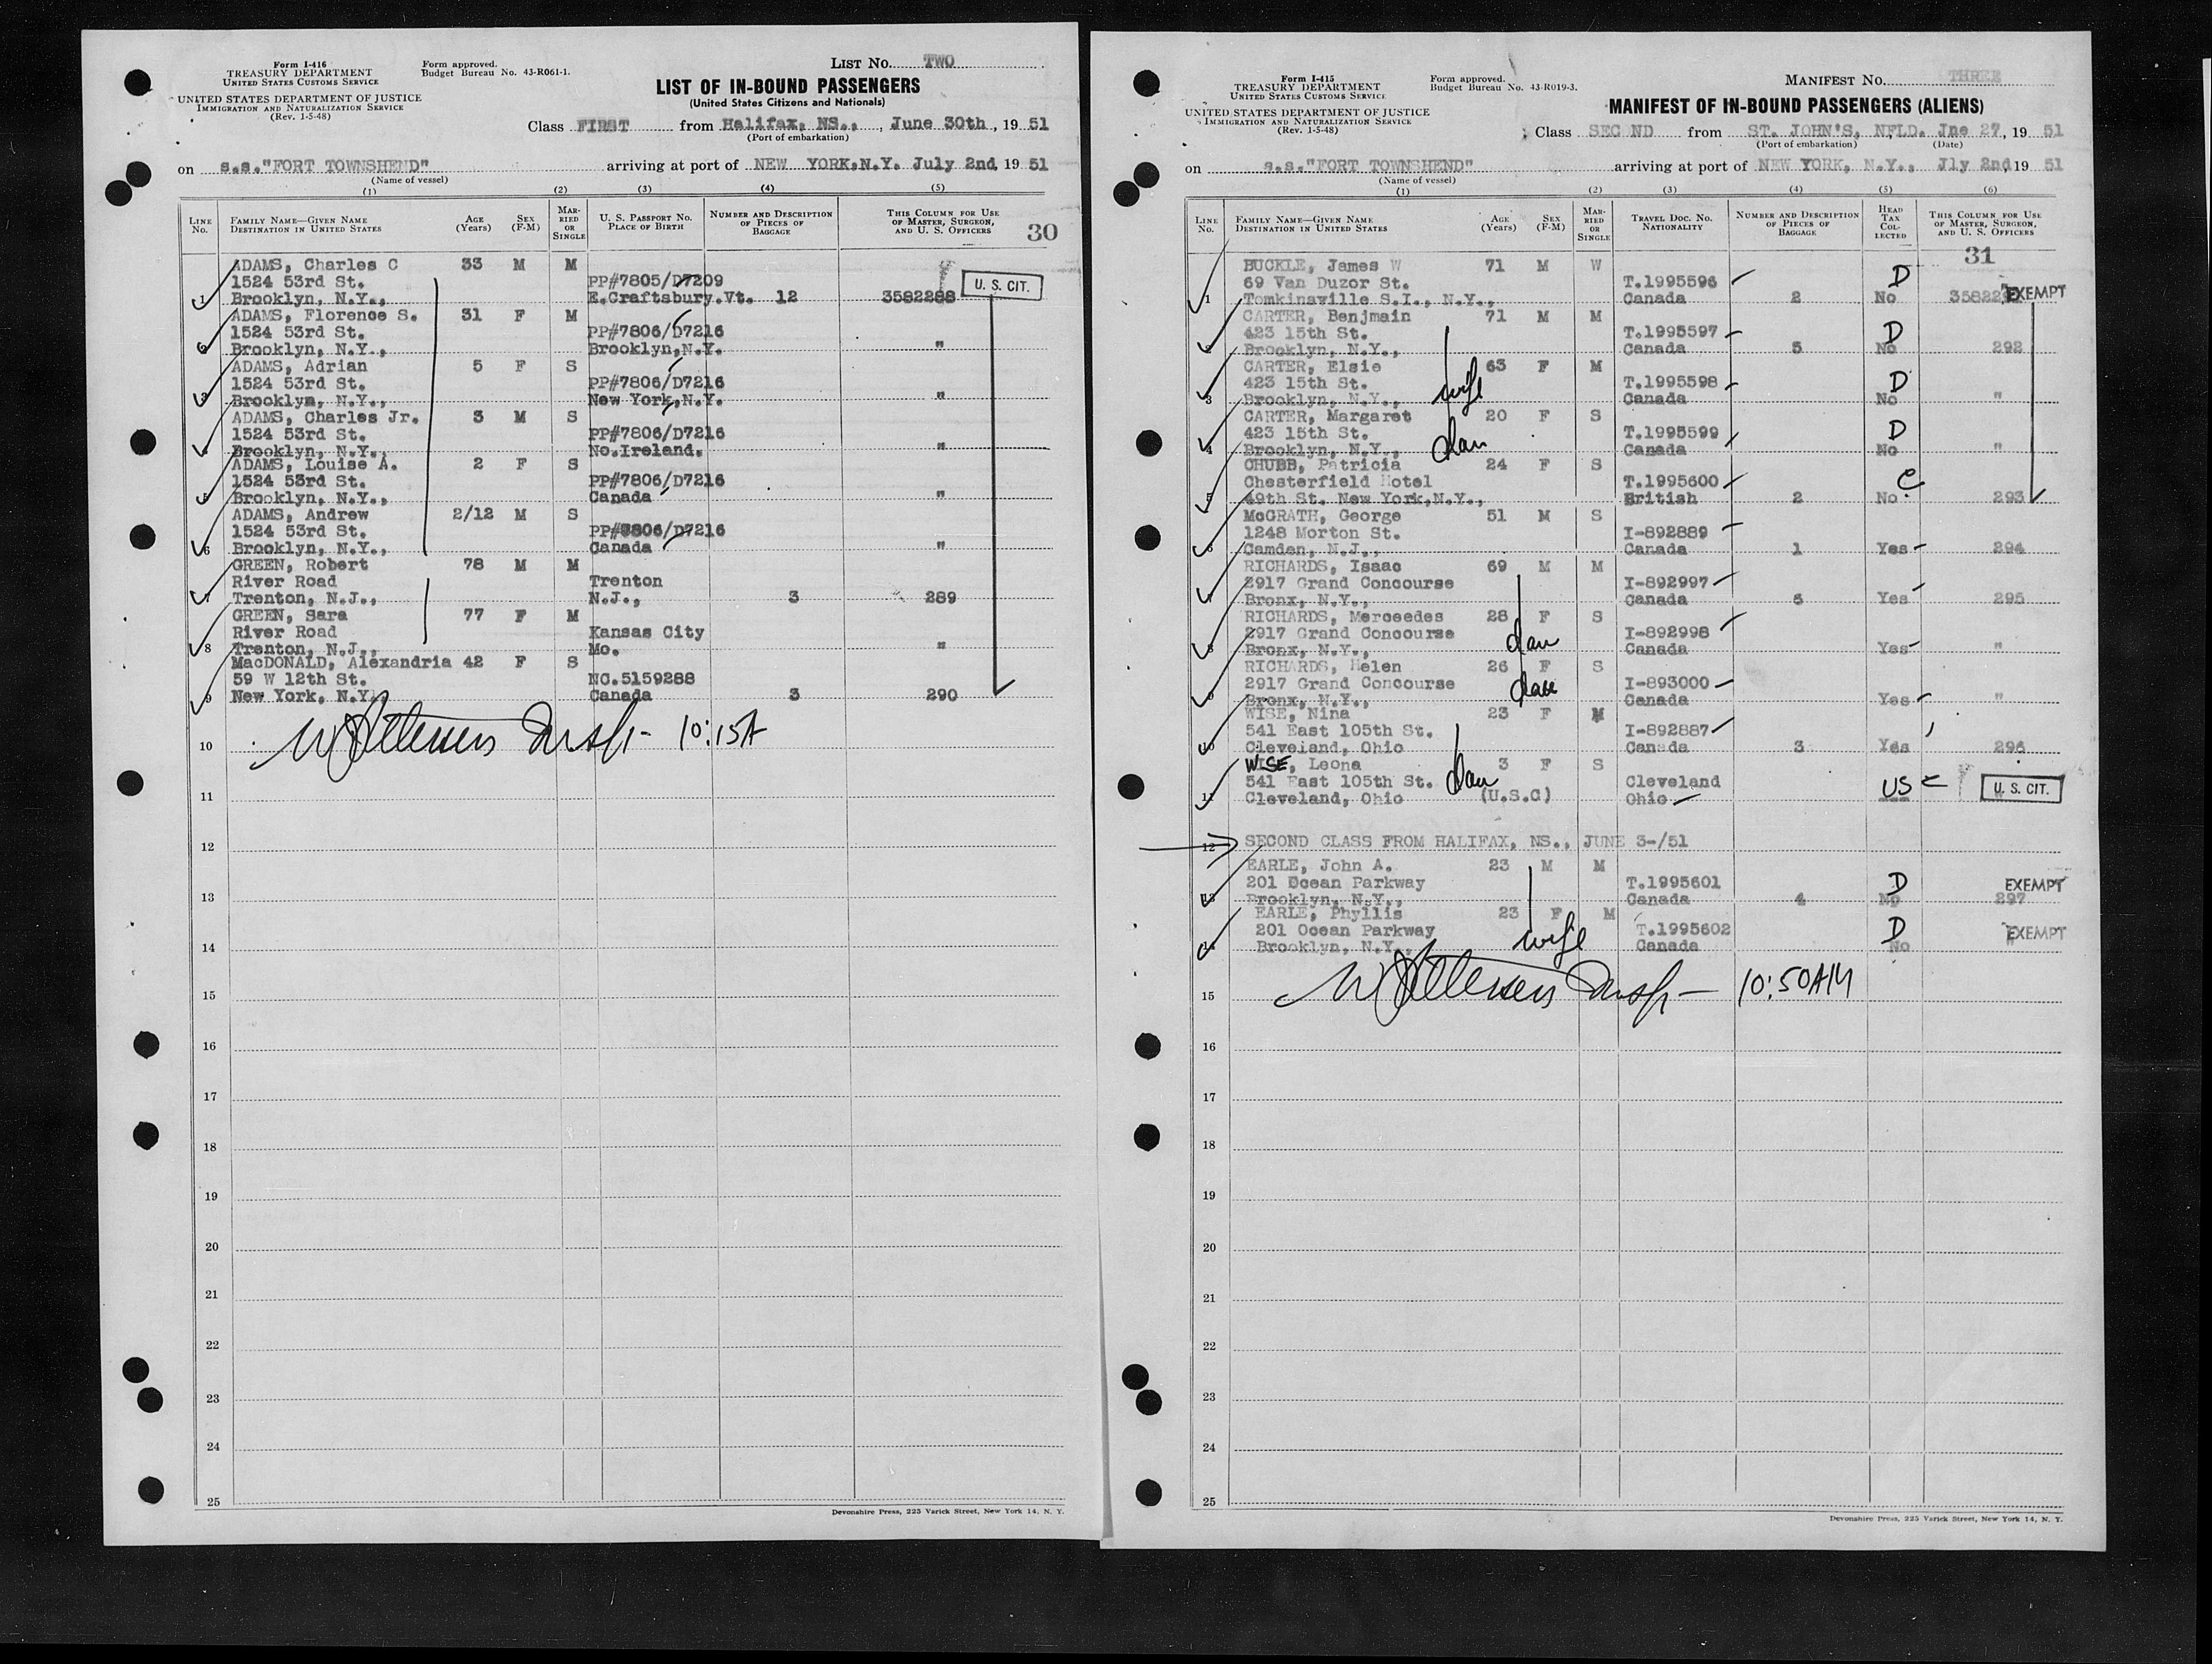 Form I-416
TREASURY DEPARTMENT
UNITED STATES CUSTOMS SERVICE
UNITED STATES DEPARTMENT OF JUSTICE
IMMIGRATION AND NATURALIZATION SERVICE
(Rev. 1-5-48)
Form approved.
Budget Bureau No. 43-R061-1.
LIST No. TWO
LIST OF IN-BOUND PASSENGERS
(United States Citizens and Nationals)
Class FIRST from Halifax, NS., June 30th, 1951
(Port of embarkation)
on s.s."FORT TOWNSHEND" arriving at port of NEW YORK,N.Y. July 2nd, 1951
(Name of vessel)
(1) (2) (3) (4) (5)
LINE No. FAMILY NAME—GIVEN NAME DESTINATION IN UNITED STATES AGE (Years) SEX (F-M) MARRIED OR SINGLE U. S. PASSPORT No. PLACE OF BIRTH NUMBER AND DESCRIPTION OF PIECES OF BAGGAGE THIS COLUMN FOR USE OF MASTER, SURGEON, AND U. S. OFFICERS
30
ADAMS, Charles C 33 M M
1524 53rd St. PP#7805/D7209 U. S. CIT.
1 Brooklyn, N.Y., E.Craftsbury.Vt. 12 3582288
ADAMS, Florence S. 31 F M
1524 53rd St. PP#7806/D7216
Brooklyn, N.Y., Brooklyn,N.Y. "
ADAMS, Adrian 5 F S
1524 53rd St. PP#7806/D7216
Brooklyn, N.Y., New York,N.Y. "
ADAMS, Charles Jr. 3 M S
1524 53rd St. PP#7806/D7216
Brooklyn, N.Y., No.Ireland. "
ADAMS, Louise A. 2 F S
1524 53rd St. PP#7806/D7216
5 Brooklyn, N.Y., Canada "
ADAMS, Andrew 2/12 M S
1524 53rd St. PP#7806/D7216
6 Brooklyn, N.Y., Canada "
GREEN, Robert 78 M M
River Road Trenton
7 Trenton, N.J., N.J., 3 289
GREEN, Sara 77 F M
River Road Kansas City
8 Trenton, N.J., Mo. "
MacDONALD, Alexandria 42 F S
59 W 12th St. NO.5159288
9 New York, N.Y. Canada 3 290
10 10:15A
11
12
13
14
15
16
17
18
19
20
21
22
23
24
25
Devonshire Press, 225 Varick Street, New York 14, N. Y.
Form I-415
TREASURY DEPARTMENT
UNITED STATES CUSTOMS SERVICE
UNITED STATES DEPARTMENT OF JUSTICE
IMMIGRATION AND NATURALIZATION SERVICE
(Rev. 1-5-48)
Form approved.
Budget Bureau No. 43-R019-3.
MANIFEST No. THREE
MANIFEST OF IN-BOUND PASSENGERS (ALIENS)
Class SEC ND from ST. JOHN'S, NFLD. Jne 27, 1951
(Port of embarkation) (Date)
on s.s."FORT TOWNSHEND" arriving at port of NEW YORK, N.Y., Jly 2nd, 1951
(Name of vessel)
(1) (2) (3) (4) (5) (6)
LINE No. FAMILY NAME—GIVEN NAME DESTINATION IN UNITED STATES AGE (Years) SEX (F-M) MARRIED OR SINGLE TRAVEL DOC. No. NATIONALITY NUMBER AND DESCRIPTION OF PIECES OF BAGGAGE HEAD TAX COLLECTED THIS COLUMN FOR USE OF MASTER, SURGEON, AND U. S. OFFICERS
31
BUCKLE, James W 71 M W
69 Van Duzor St. T.1995596 D
1 Tomkinsville S.I., N.Y., Canada 2 No EXEMPT
CARTER, Benjmain 71 M M
423 15th St. T.1995597 D
Brooklyn, N.Y., Canada 5 No 292
CARTER, Elsie 63 F M
423 15th St. wife T.1995598 D
3 Brooklyn, N.Y., Canada No "
CARTER, Margaret 20 F S
423 15th St. dau T.1995599 D
4 Brooklyn, N.Y., Canada No "
CHUBB, Patricia 24 F S
Chesterfield Hotel T.1995600 C
5 49th St. New York,N.Y., British 2 No 293
McGRATH, George 51 M S
1248 Morton St. I-892889
6 Camden, N.J., Canada 1 Yes 294
RICHARDS, Isaac 69 M M
2917 Grand Concourse I-892997
7 Bronx, N.Y., Canada 5 Yes 295
RICHARDS, Merceedes 28 F S
2917 Grand Concourse dau I-892998
8 Bronx, N.Y., Canada Yes "
RICHARDS, Helen 26 F S
2917 Grand Concourse dau I-893000
9 Bronx, N.Y., Canada Yes "
WISE, Nina 23 F M
541 East 105th St. I-892887
10 Cleveland, Ohio Canada 3 Yes 296
WISE, Leona 3 F S
541 East 105th St. dau Cleveland
11 Cleveland, Ohio (U.S.C) Ohio US U. S. CIT.
12 SECOND CLASS FROM HALIFAX, NS., JUNE 3-/51
EARLE, John A. 23 M M
201 Ocean Parkway T.1995601 D EXEMPT
13 Brooklyn, N.Y., Canada 4 No 297
EARLE, Phyllis 23 F M
201 Ocean Parkway wife T.1995602 D EXEMPT
Brooklyn, N.Y., Canada No "
15 10:50AM
16
17
18
19
20
21
22
23
24
25
Devonshire Press, 225 Varick Street, New York 14, N. Y.